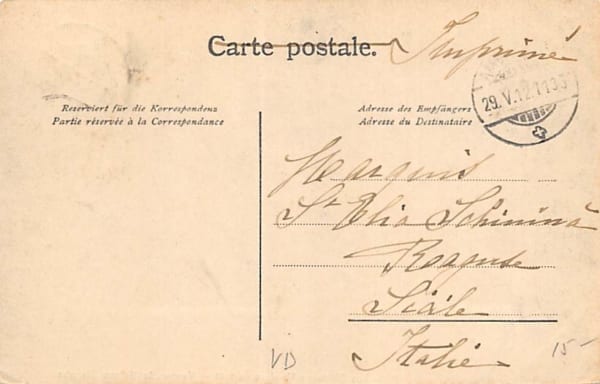 Carte postale.
Imprimé
29.V.12.11
Reserviert für die Korrespondenz
Partie réservée à la Correspondance
Adresse des Empfängers
Adresse du Destinataire
Marquis
St Elia Schininá
Raguse
Sicile
Italie
VD
15-